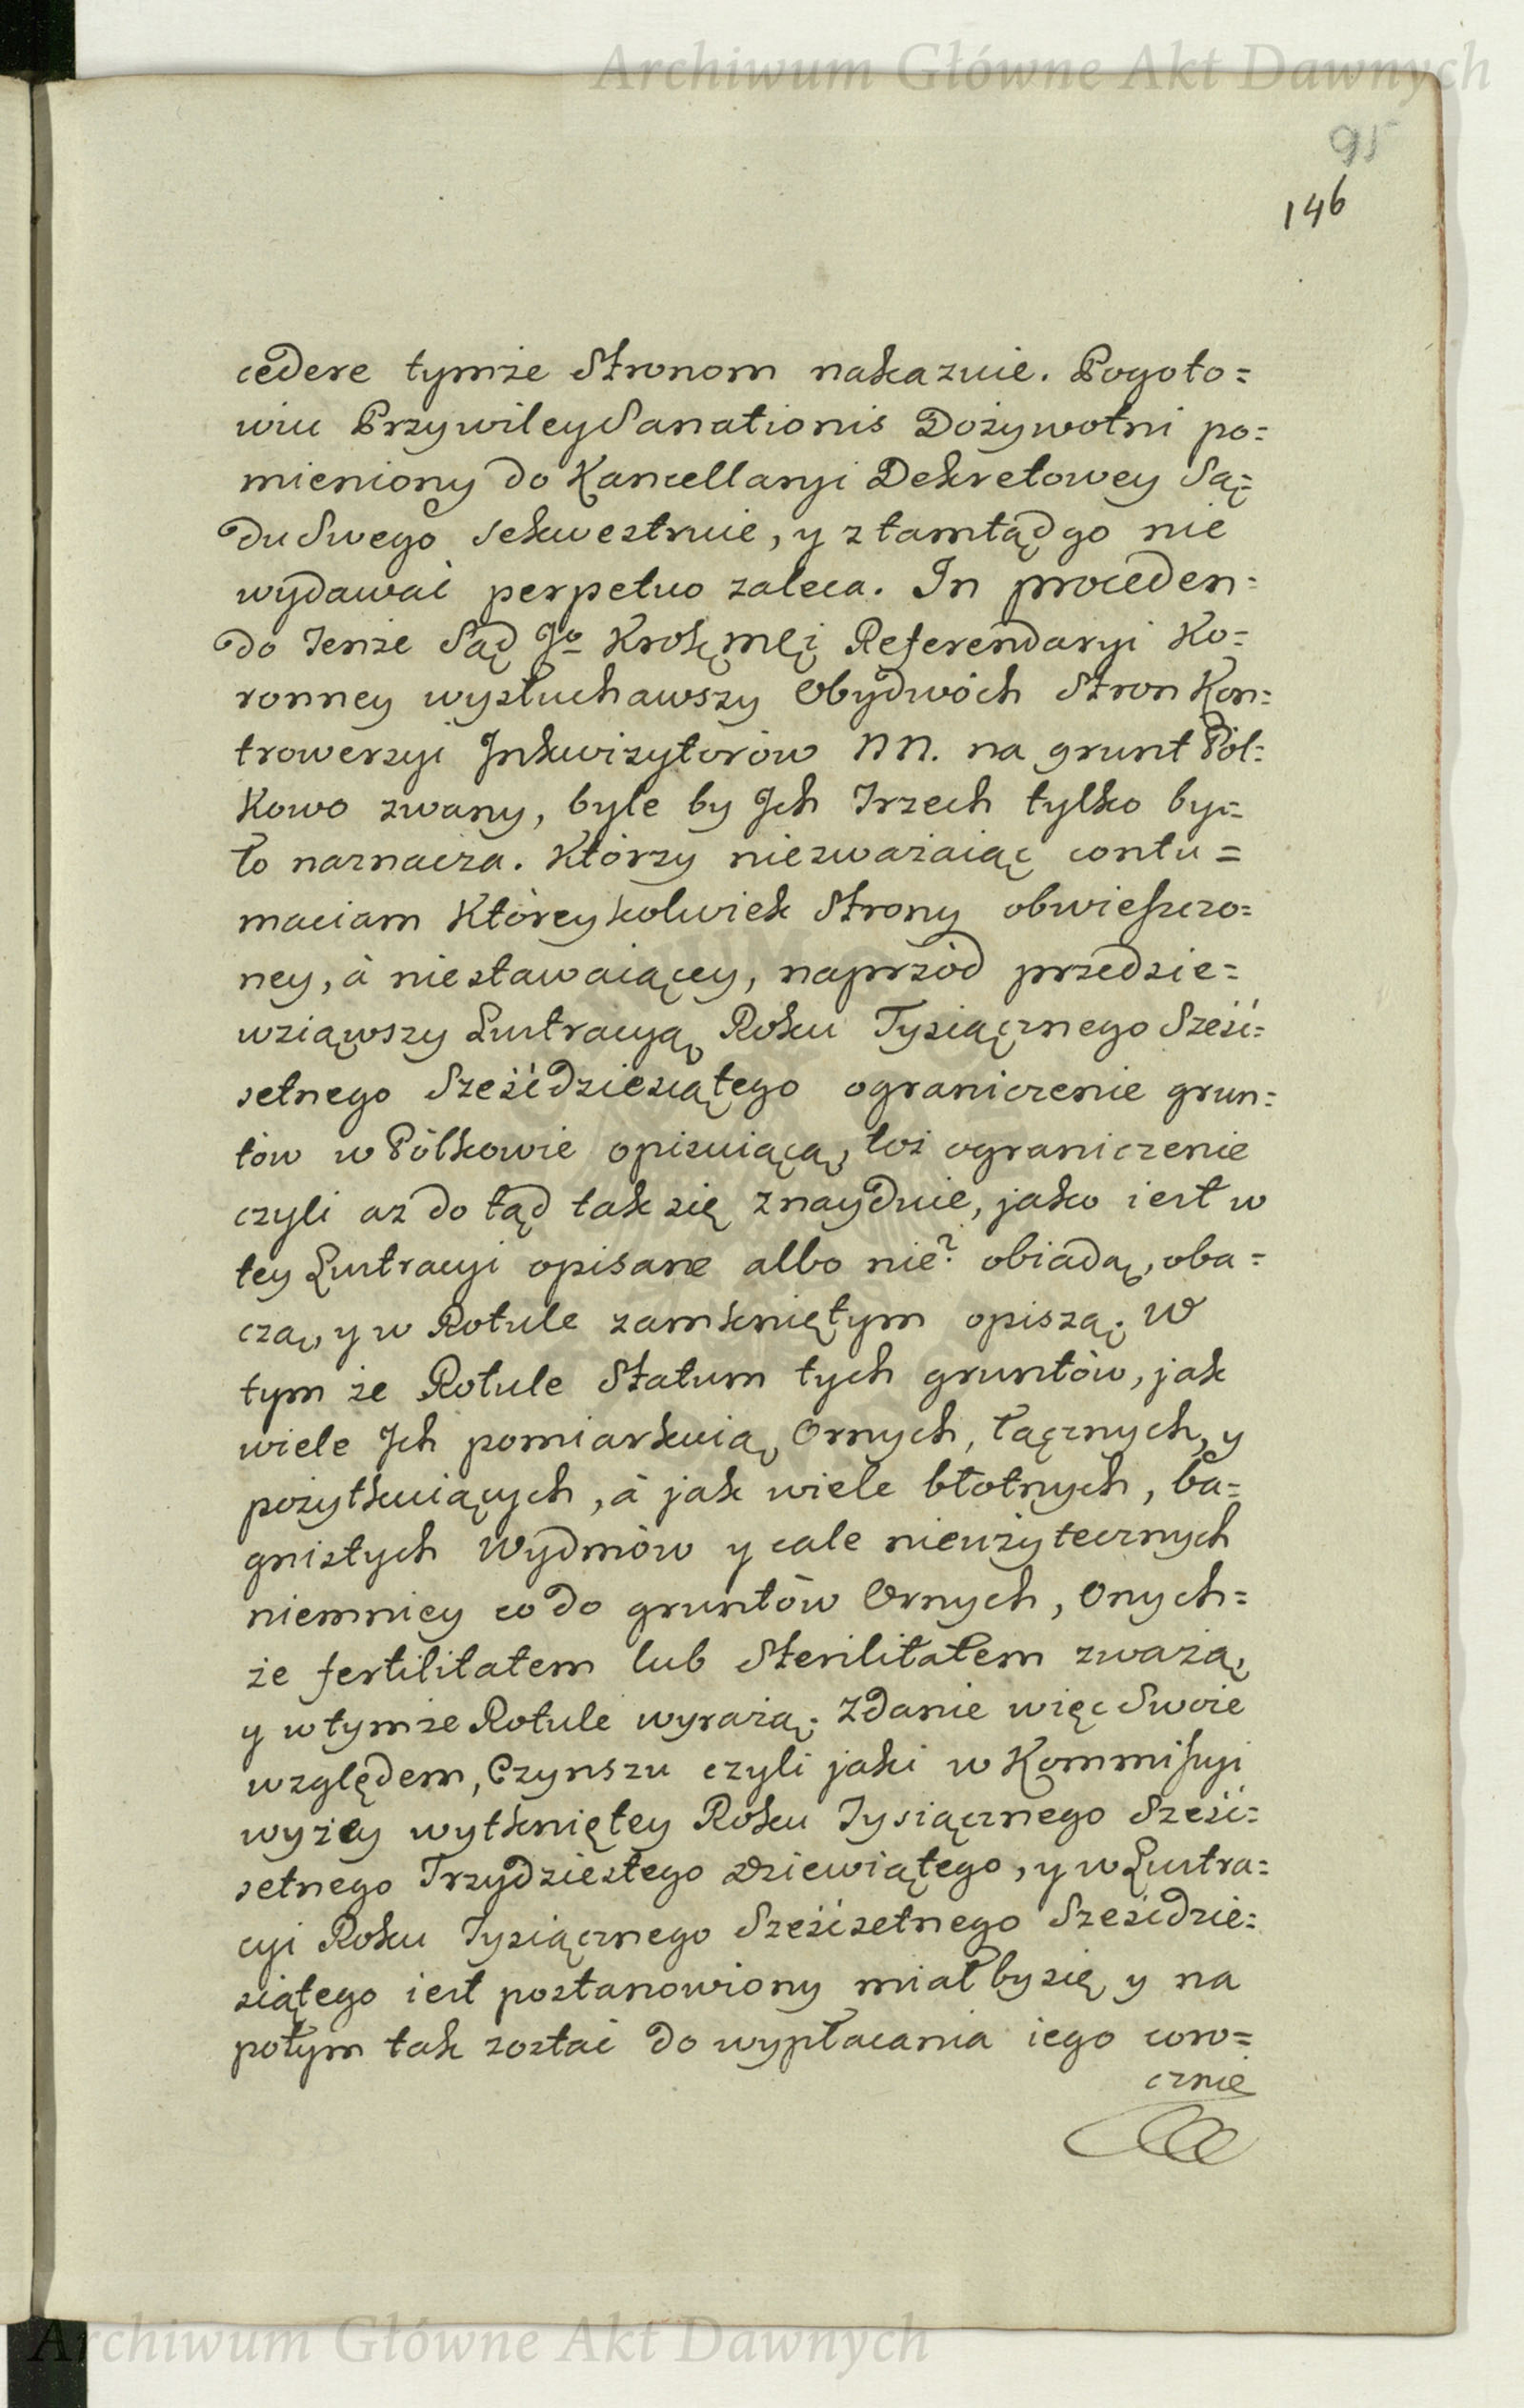 Archiwum Główne Akt Dawnych
95
146
cedere tymże Stronom nakazuie. Pogoto=
wiu Przywiley Sanationis Dożywotni po=
mieniony do Kancellaryi Dekretowey Są=
du Swego sekwestruie, y ztamtąd go nie
wydawać perpetuo zaleca. In proceden=
do Tenże Sąd Jo Krolę mci Referendaryi Ko=
ronney wysłuchawszy Obydwóch Stron Kon=
trowersyi Jnkwizytorów NN. na grunt Pól=
kowo zwany, byle by Jch Trzech tylko by=
ło naznacza. Którzy niezważaiąc contu=
maciam Któreykolwiek Strony obwieszczo=
ney, à niestawaiącey, naprzód przedsie=
wziąwszy Lustracyą Roku Tysiącznego Sześć=
setnego Sześćdziesiątego ograniczenie grun=
tów w Pólkowie opisuiącą, toż ograniczenie
czyli aż do tąd tak się znayduie, jako iest w
tey Lustracyi opisane albo nie? obiadą, oba=
czą, y w Rotule zamkniętym opiszą. W
tym że Rotule Statum tych gruntów, jak
wiele Jch pomiarkuią Ornych, łącznych, y
pożytkuiących, à jak wiele błotnych, ba=
gnistych Wydmów y cale nieużytecznych
niemniey co do gruntów Ornych, Onych=
że fertilitatem lub Sterilitatem zważą,
y w tymże Rotule wyrażą. Zdanie więc Swoie
względem, Czynszu czyli jaki w Kommissyi
wyżey wytkniętey Roku Tysiącznego Sześć=
setnego Trzydziestego Dziewiątego, y w Lustra=
cyi Roku Tysiącznego Sześćsetnego Sześćdzie=
siątego iest postanowiony miałby się y na
potym tak zostać do wypłacania iego coro=
cznie
Archiwum Główne Akt Dawnych